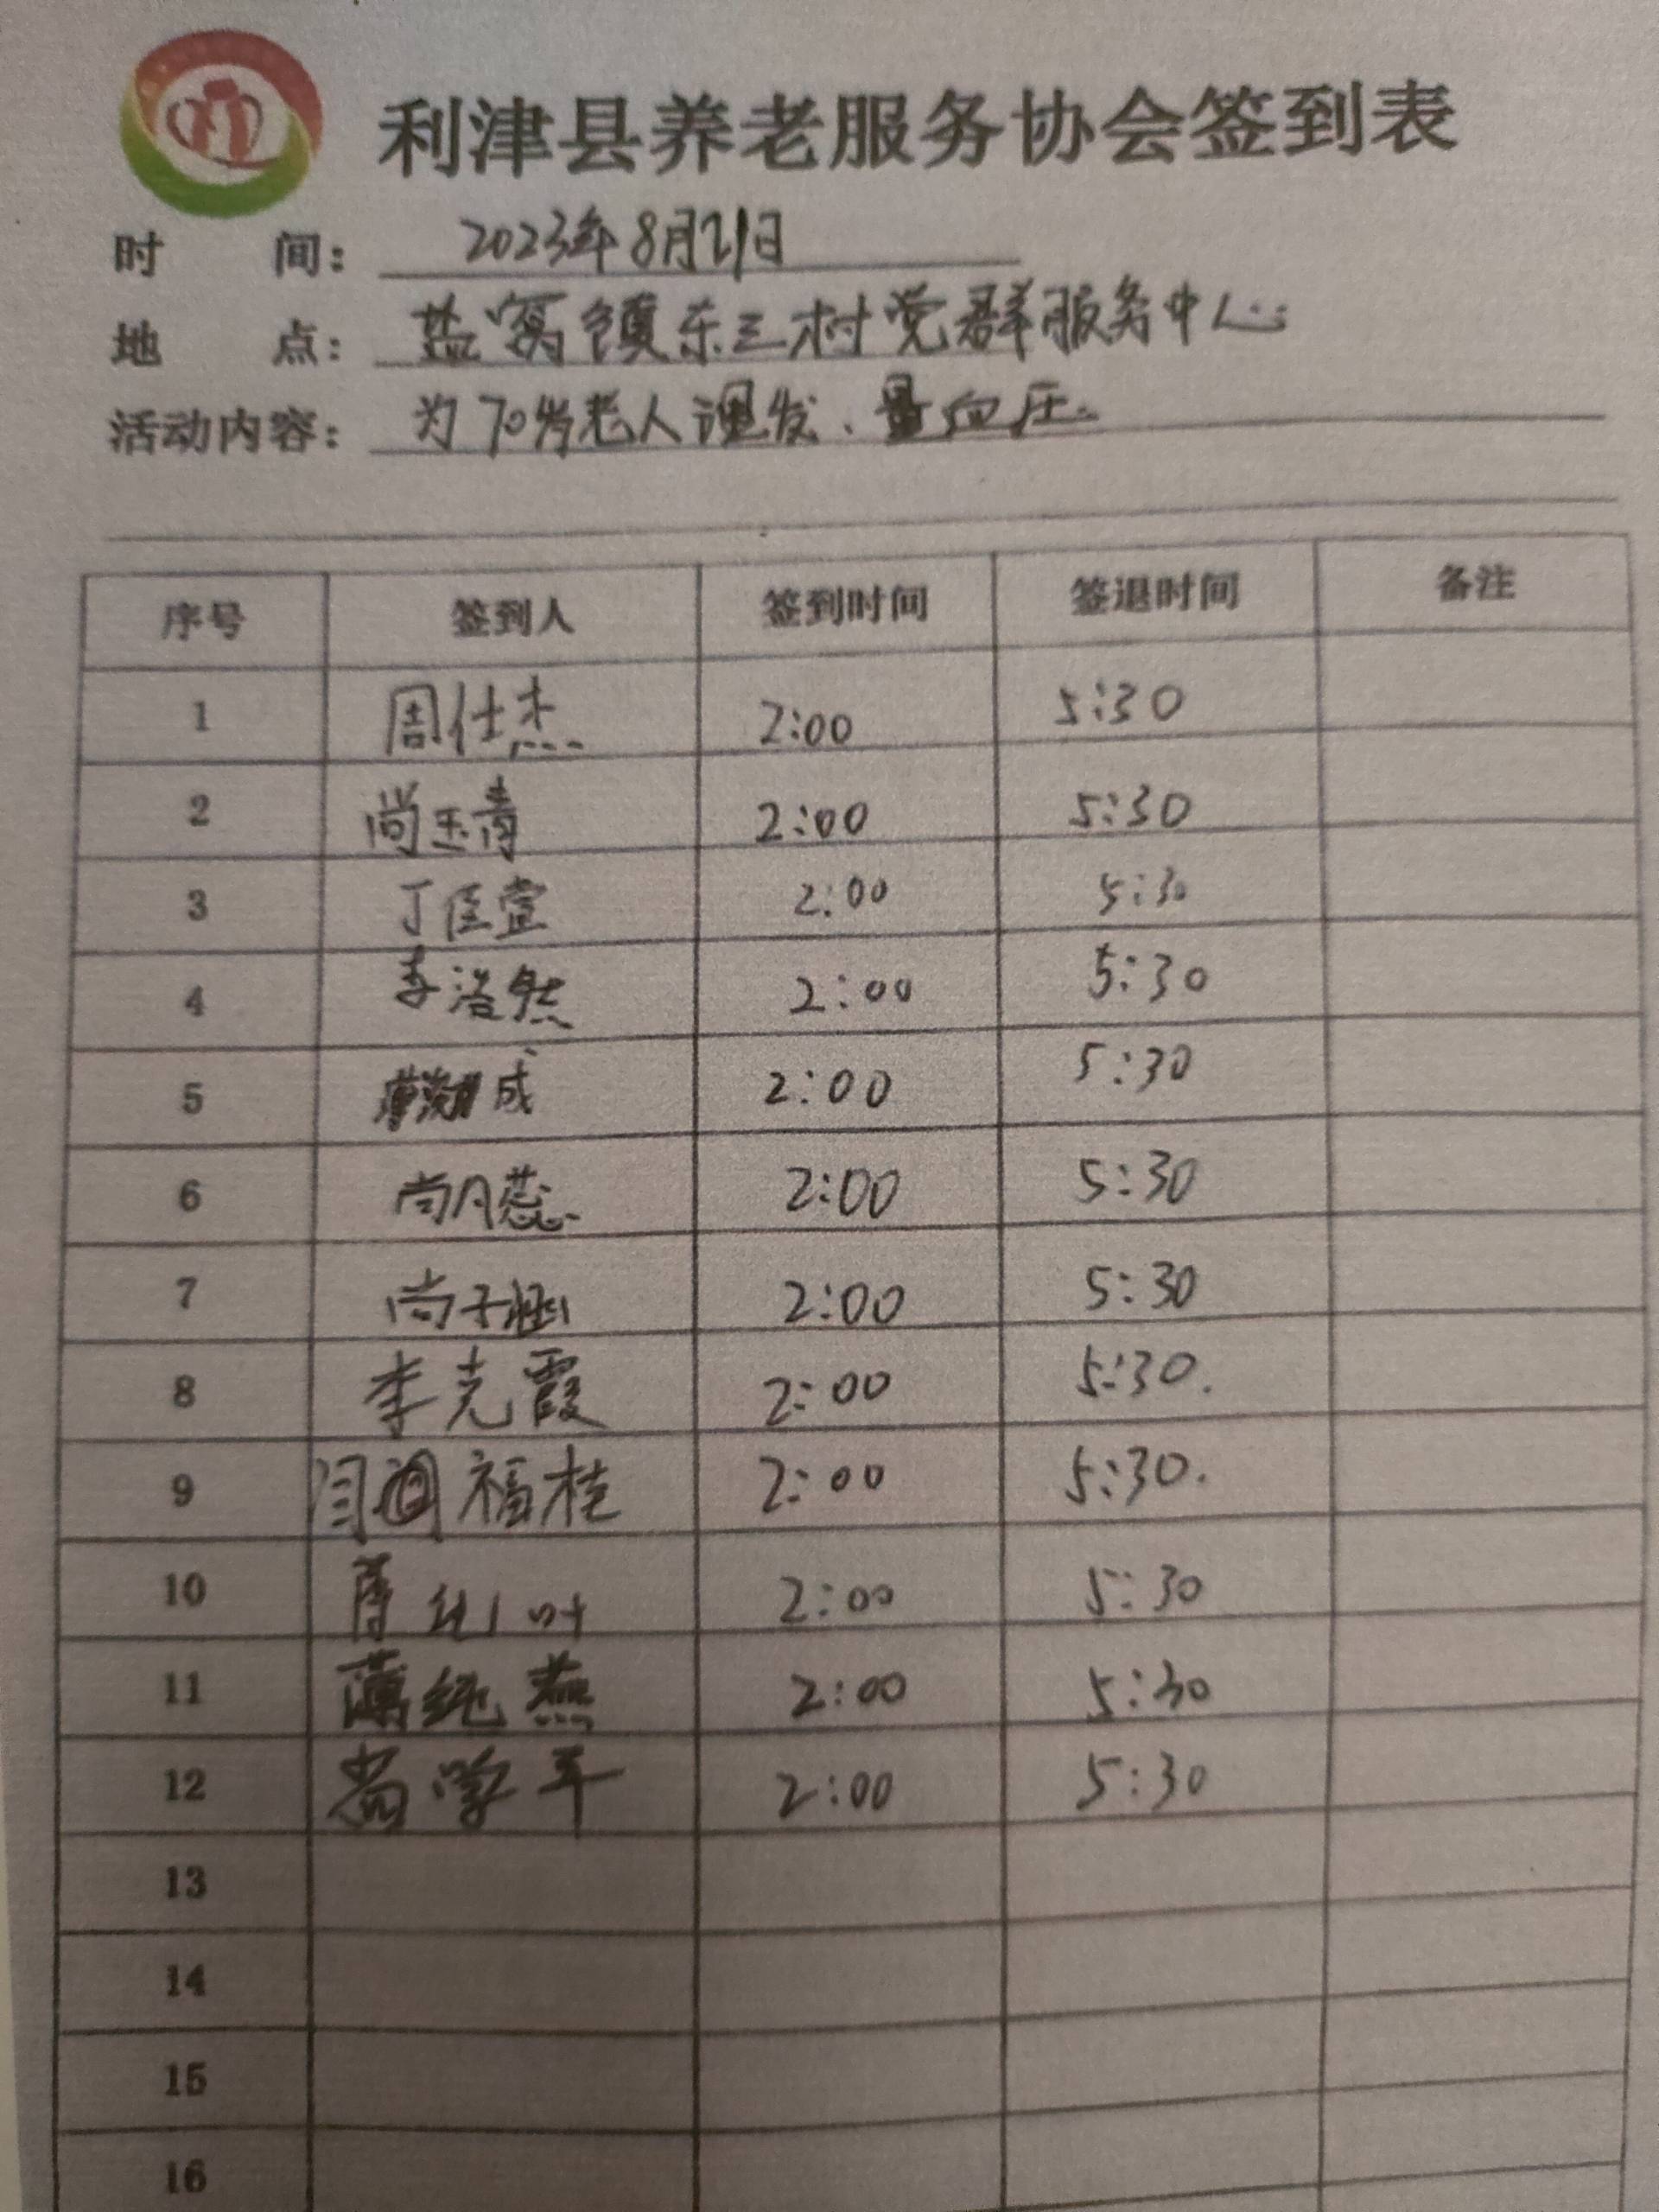 利津县养老服务协会签到表
时 间: 2023年8月21日
地 点: 盐窝镇东三村党群服务中心
活动内容: 为70岁老人理发、量血压.
序号 签到人 签到时间 签退时间 备注
1 周仕杰 2:00 5:30
2 尚玉青 2:00 5:30
3 丁佳萱 2:00 5:30
4 李浩然 2:00 5:30
5 成 2:00 5:30
6 尚月蕊 2:00 5:30
7 尚子涵 2:00 5:30
8 李克霞 2:00 5:30.
9 闫福桂 2:00 5:30.
10 2:00 5:30
11 薄纯燕 2:00 5:30
12 尚学平 2:00 5:30
13
14
15
16